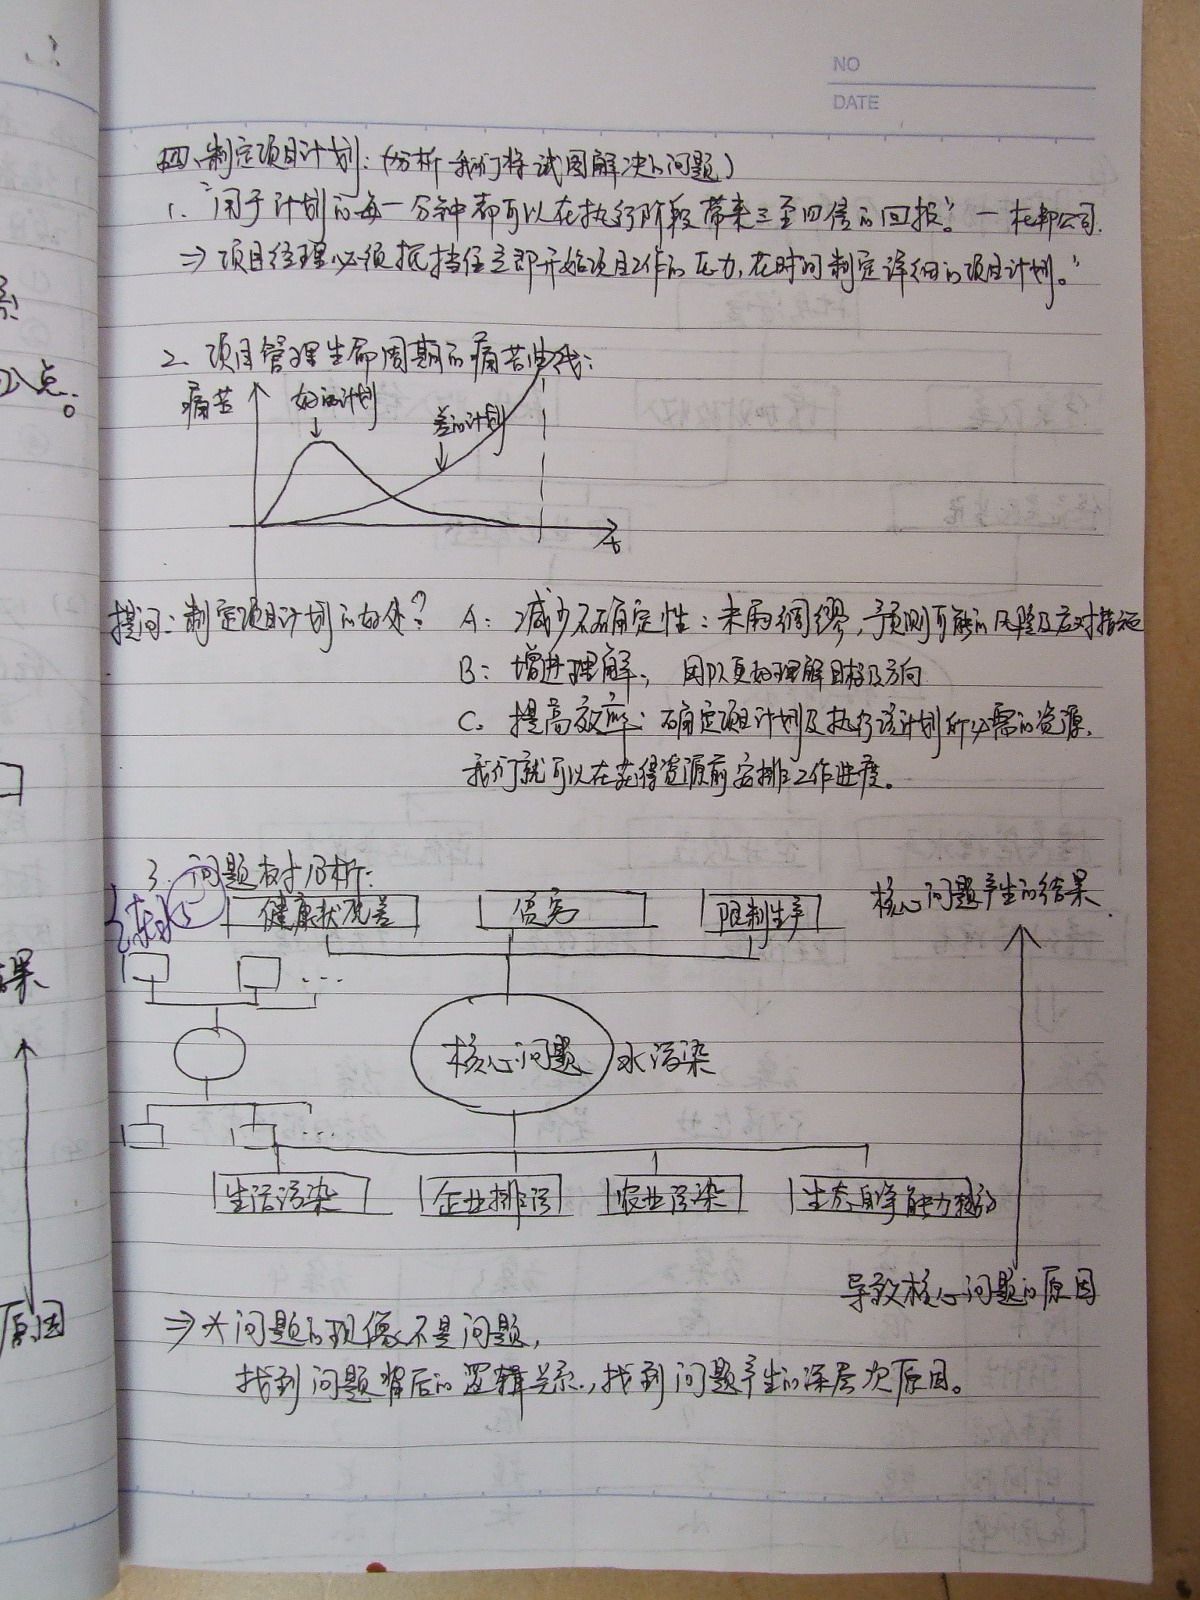 NO
DATE
四、制定项目计划：(分析我们将试图解决的问题)
1. "用于计划的每一分钟都可以在执行阶段带来三至四倍的回报。" — 杜邦公司.
⇒ 项目经理必须抵挡住立即开始项目工作的压力，花时间制定详细的项目计划。"
2. 项目管理生命周期的痛苦曲线：
痛苦 好的计划
差的计划
t
提问：制定项目计划的好处？ A：减少不确定性：未雨绸缪，预测可能的风险及应对措施
B：增进理解， 团队更好理解目标及方向
C. 提高效率：确定项目计划及执行该计划所必需的资源，
我们就可以在获得资源前安排工作进度。
3. 问题树分析：
健康状况差 贫穷 限制生产 核心问题产生的结果
...
核心问题 水污染
...
生活污染 企业排污 农业污染 生态自净能力被
导致核心问题的原因
⇒ * 问题的现像不是问题，
找到问题背后的逻辑关系，找到问题产生的深层次原因。
点。
果
原因